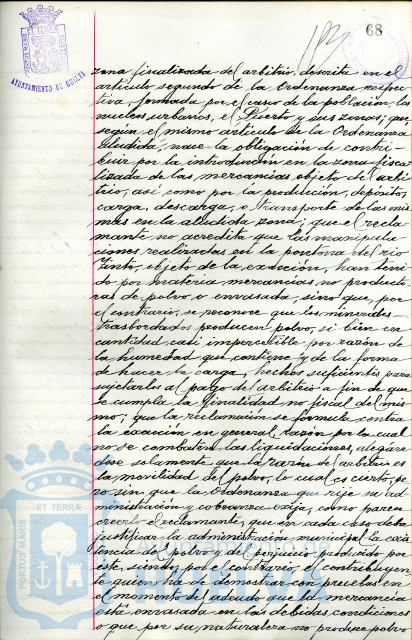 68
PORTUS MARIS ET TERRÆ
AYUNTAMIENTO DE HUELVA
zona fiscalizada del arbitrio, descrita en el
artículo segundo de la Ordenanza respec-
tiva, formada por el casco de la población, los
nucleos urbanos, el Puerto y sus zonas; que,
según el mismo artículo de la Ordenanza
aludida, nace la obligación de contri-
buir por la introducción en la zona fisca-
lizada de las mercancías objeto del arbi-
trio, así como por la producción, depósito,
carga, descarga, o transporte de las mis-
mas en la aludida zona; que el recla-
mante no acredita que las manipula-
ciones realizadas en la pontona del rio
Tinto, objeto de la exacción, han teni-
do por materia mercancías no producto-
ras de polvo o envasada sino que, por
el contrario, se reconoce que los minerales
trasbordados producen polvo, si bien en
cantidad casi imperceptible por razón de
la humedad que contiene y de la forma
de hacer la carga, hechos suficientes para
sujetarlos al pago del arbitrio a fin de que
se cumpla la finalidad no fiscal del mis-
mo; que la reclamación se formula contra
la exacción en general, razón por la cual
no se combaten las liquidaciones, alegán-
dose solamente que la razón del arbitrio es
la movilidad del polvo, lo cual es cierto, pe-
ro sin que la Ordenanza que rije su ad-
ministración y cobranza exija, como parece
creerlo el reclamante, que en cada caso deba
justificar la administración municipal la exis-
tencia del polvo y del perjuicio producido por
este, siendo, por el contrario, el contribuyen-
te quien ha de demostrar con pruebas en
el momento del adeudo que la mercancía
está envasada en las debidas condiciones
o que por su naturaleza no produce polvo
PORTUS MARIS ET TERRÆ